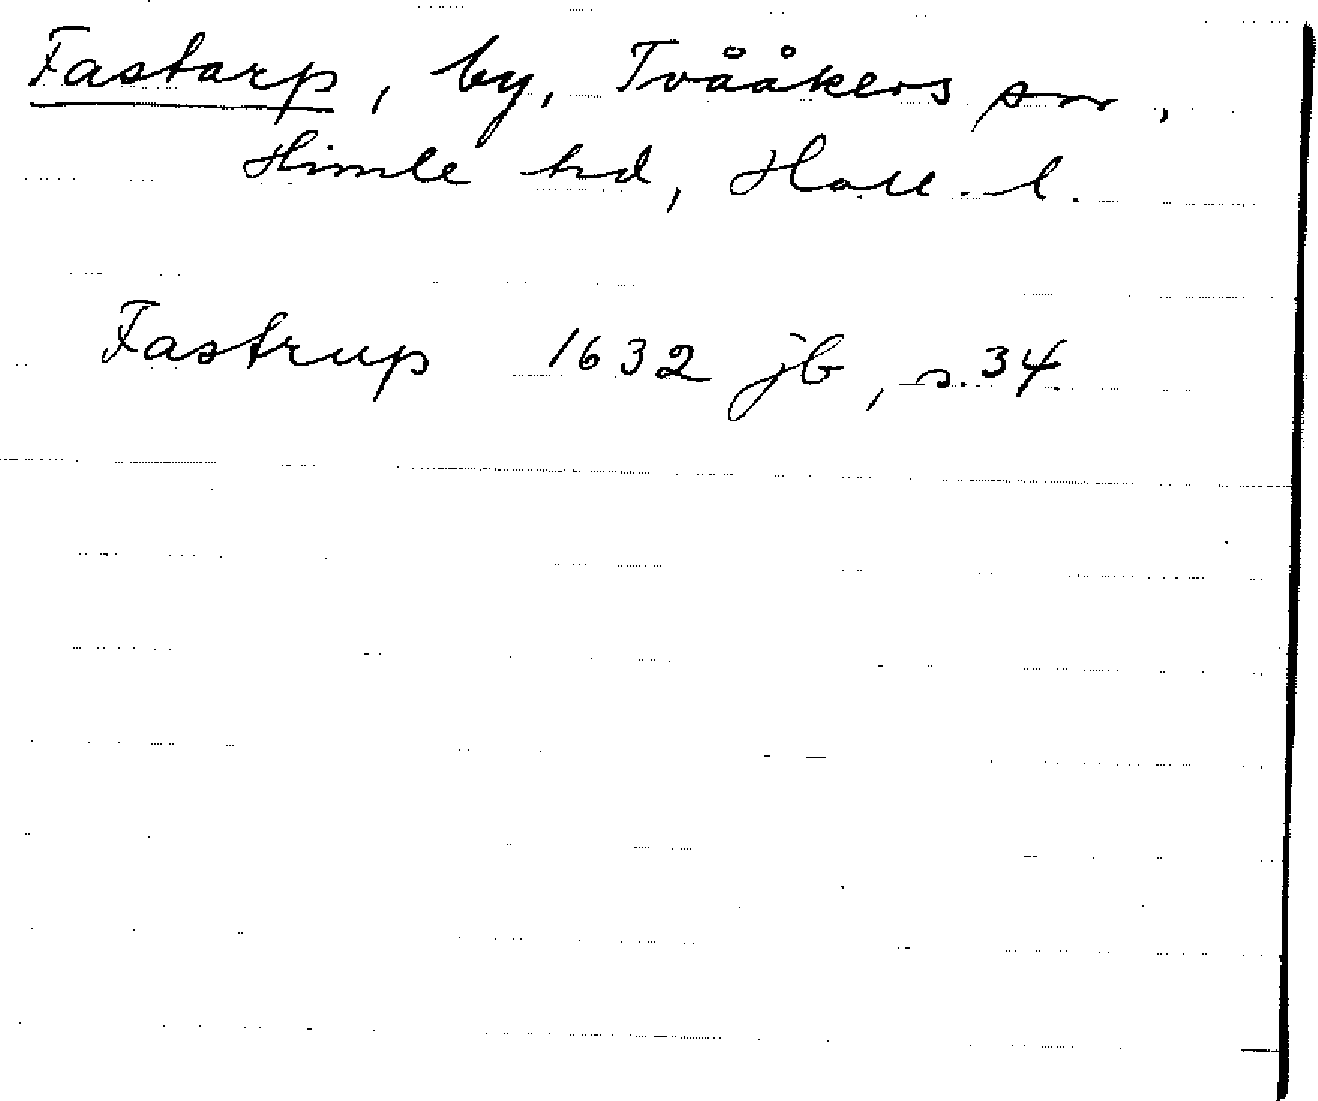 Fastarp, by, Tvååkers sn,
Himle hd, Hall. l.
Fastrup 1632 jb, s. 34